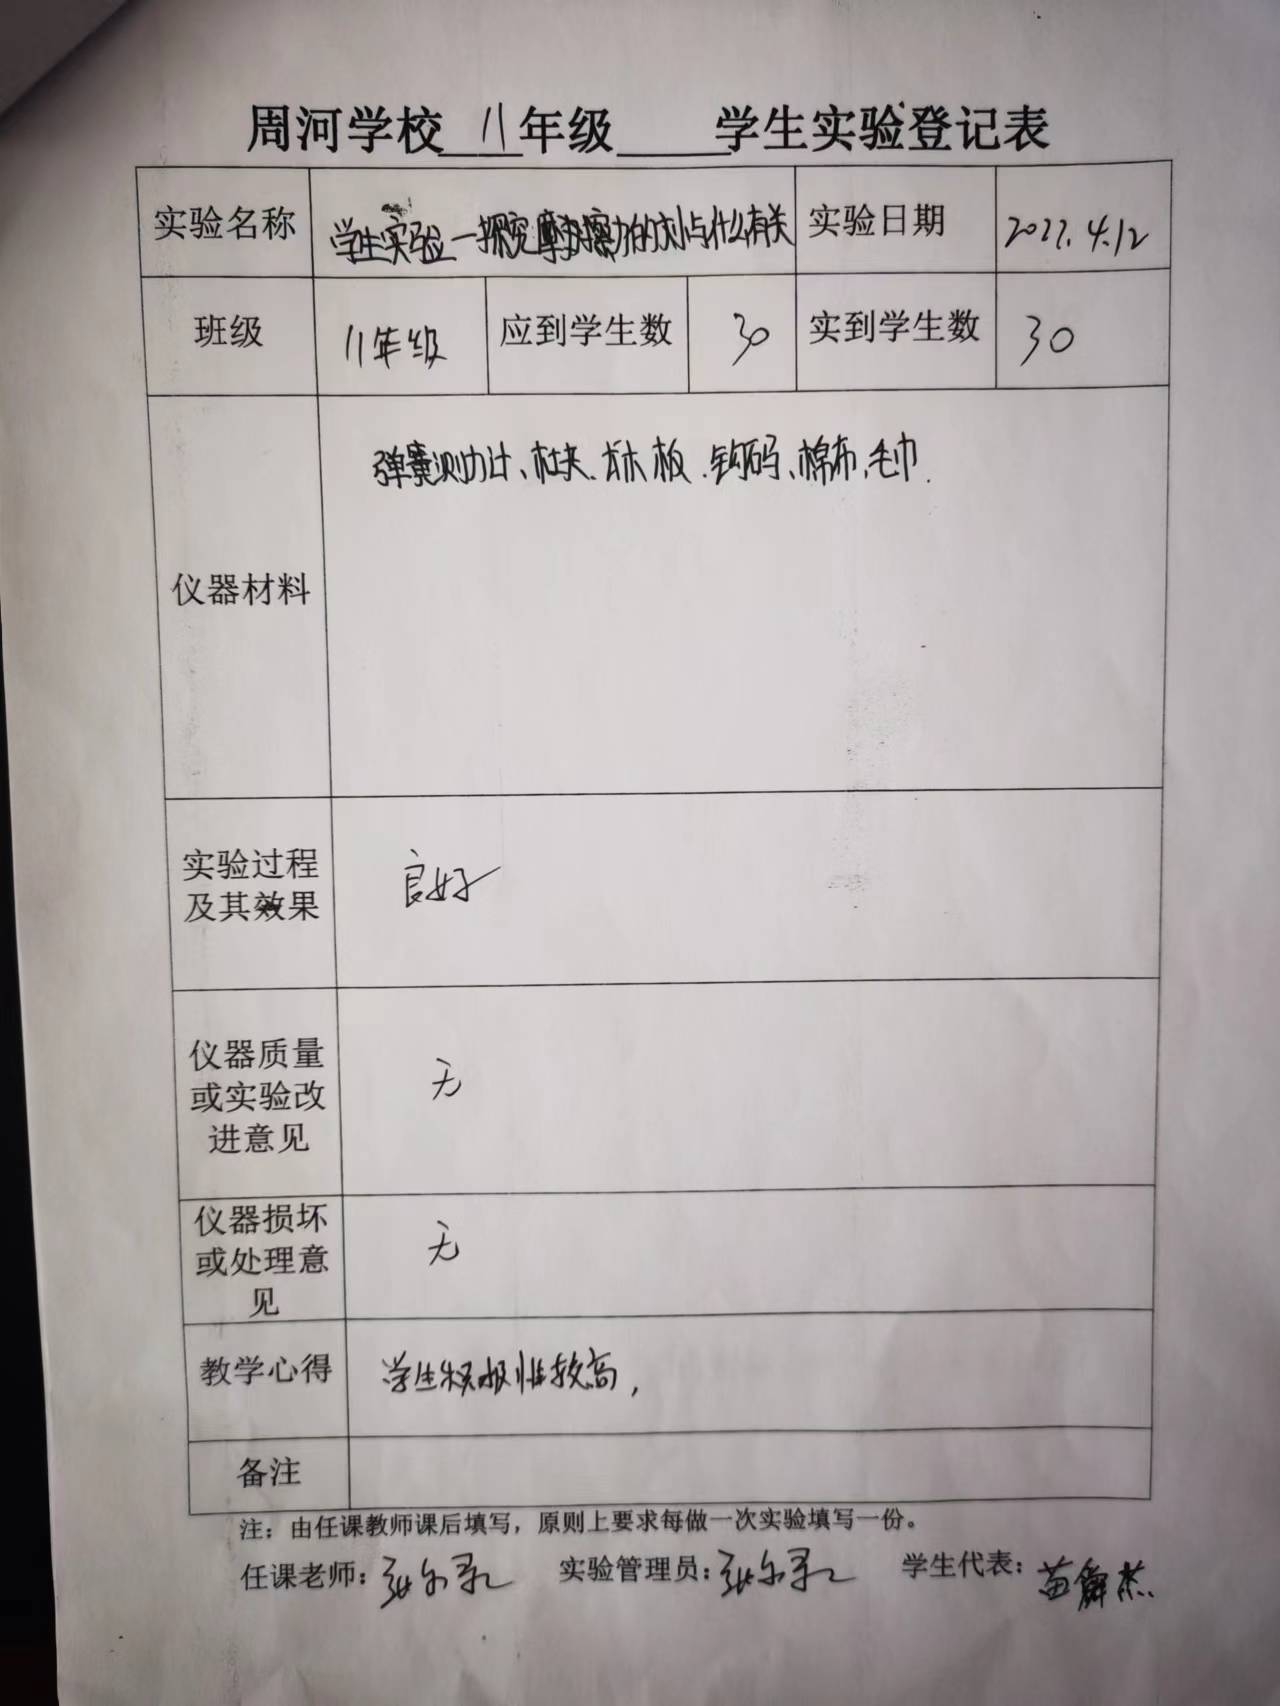 周河学校 八 年级 学生实验登记表
实验名称 学生实验一探究摩擦力的大小与什么有关 实验日期 2022.4.12
班级 八年级 应到学生数 30 实到学生数 30
弹簧测力计、木块、木板、钩码、棉布、毛巾.
仪器材料
实验过程
及其效果
良好
仪器质量
或实验改
进意见
无
仪器损坏
或处理意
见
无
教学心得 学生积极性较高,
备注
注：由任课教师课后填写，原则上要求每做一次实验填写一份。
任课老师: 实验管理员: 学生代表: 苗